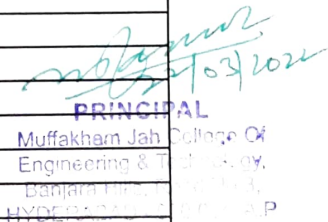 22/03/2022
PRINCIPAL
Muffakham Jah College Of
Engineering & Technology,
Banjara Hills,
HYDERABAD A.P